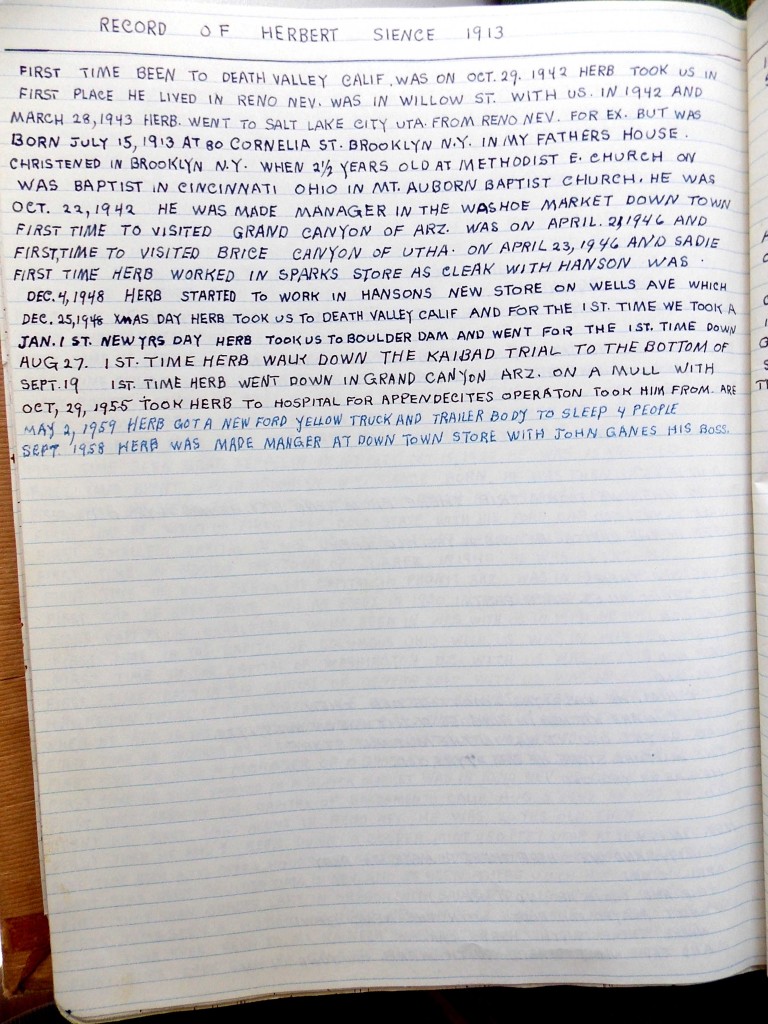 RECORD OF HERBERT SIENCE 1913
FIRST TIME BEEN TO DEATH VALLEY CALIF. WAS ON OCT. 29. 1942 HERB TOOK US IN
FIRST PLACE HE LIVED IN RENO NEV. WAS IN WILLOW ST. WITH US. IN 1942 AND
MARCH 28, 1943 HERB. WENT TO SALT LAKE CITY UTA. FROM RENO NEV. FOR EX. BUT WAS
BORN JULY 15, 1913 AT 80 CORNELIA ST. BROOKLYN N.Y. IN MY FATHERS HOUSE.
CHRISTENED IN BROOKLYN N.Y. WHEN 2½ YEARS OLD AT METHODIST E. CHURCH ON
WAS BAPTIST IN CINCINNATI OHIO IN MT. AUBORN BAPTIST CHURCH. HE WAS
OCT. 22, 1942 HE WAS MADE MANAGER IN THE WASHOE MARKET DOWN TOWN
FIRST TIME TO VISITED GRAND CANYON OF ARZ. WAS ON APRIL. 21, 1946 AND
FIRST, TIME TO VISITED BRICE CANYON OF UTHA. ON APRIL 23, 1946 AND SADIE
FIRST TIME HERB WORKED IN SPARKS STORE AS CLEAK WITH HANSON WAS.
DEC. 4, 1948 HERB STARTED TO WORK IN HANSONS NEW STORE ON WELLS AVE WHICH
DEC. 25, 1948 XMAS DAY HERB TOOK US TO DEATH VALLEY CALIF AND FOR THE 1ST. TIME WE TOOK A
JAN. 1 ST. NEW YRS DAY HERB TOOK US TO BOULDER DAM AND WENT FOR THE 1ST. TIME DOWN
AUG 27. 1ST. TIME HERB WALK DOWN THE KAIBAD TRIAL TO THE BOTTOM OF
SEPT. 19 1ST. TIME HERB WENT DOWN IN GRAND CANYON ARZ. ON A MULL WITH
OCT, 29, 1955 TOOK HERB TO HOSPITAL FOR APPENDECITES OPERATON TOOK HIM FROM. ARE
MAY 2, 1959 HERB GOT A NEW FORD YELLOW TRUCK AND TRAILER BODY TO SLEEP 4 PEOPLE
SEPT 1958 HERB WAS MADE MANGER AT DOWN TOWN STORE WITH JOHN GANES HIS BOSS.